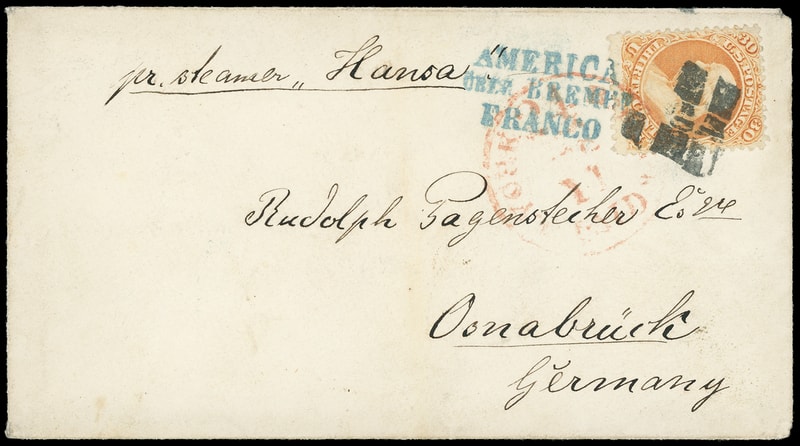 pr. steamer „Hansa"
AMERICA
ÜBER BREMEN
FRANCO
30
U.S. POSTAGE
30
Rudolph Pagenstecher Esqre
Osnabrück
Germany